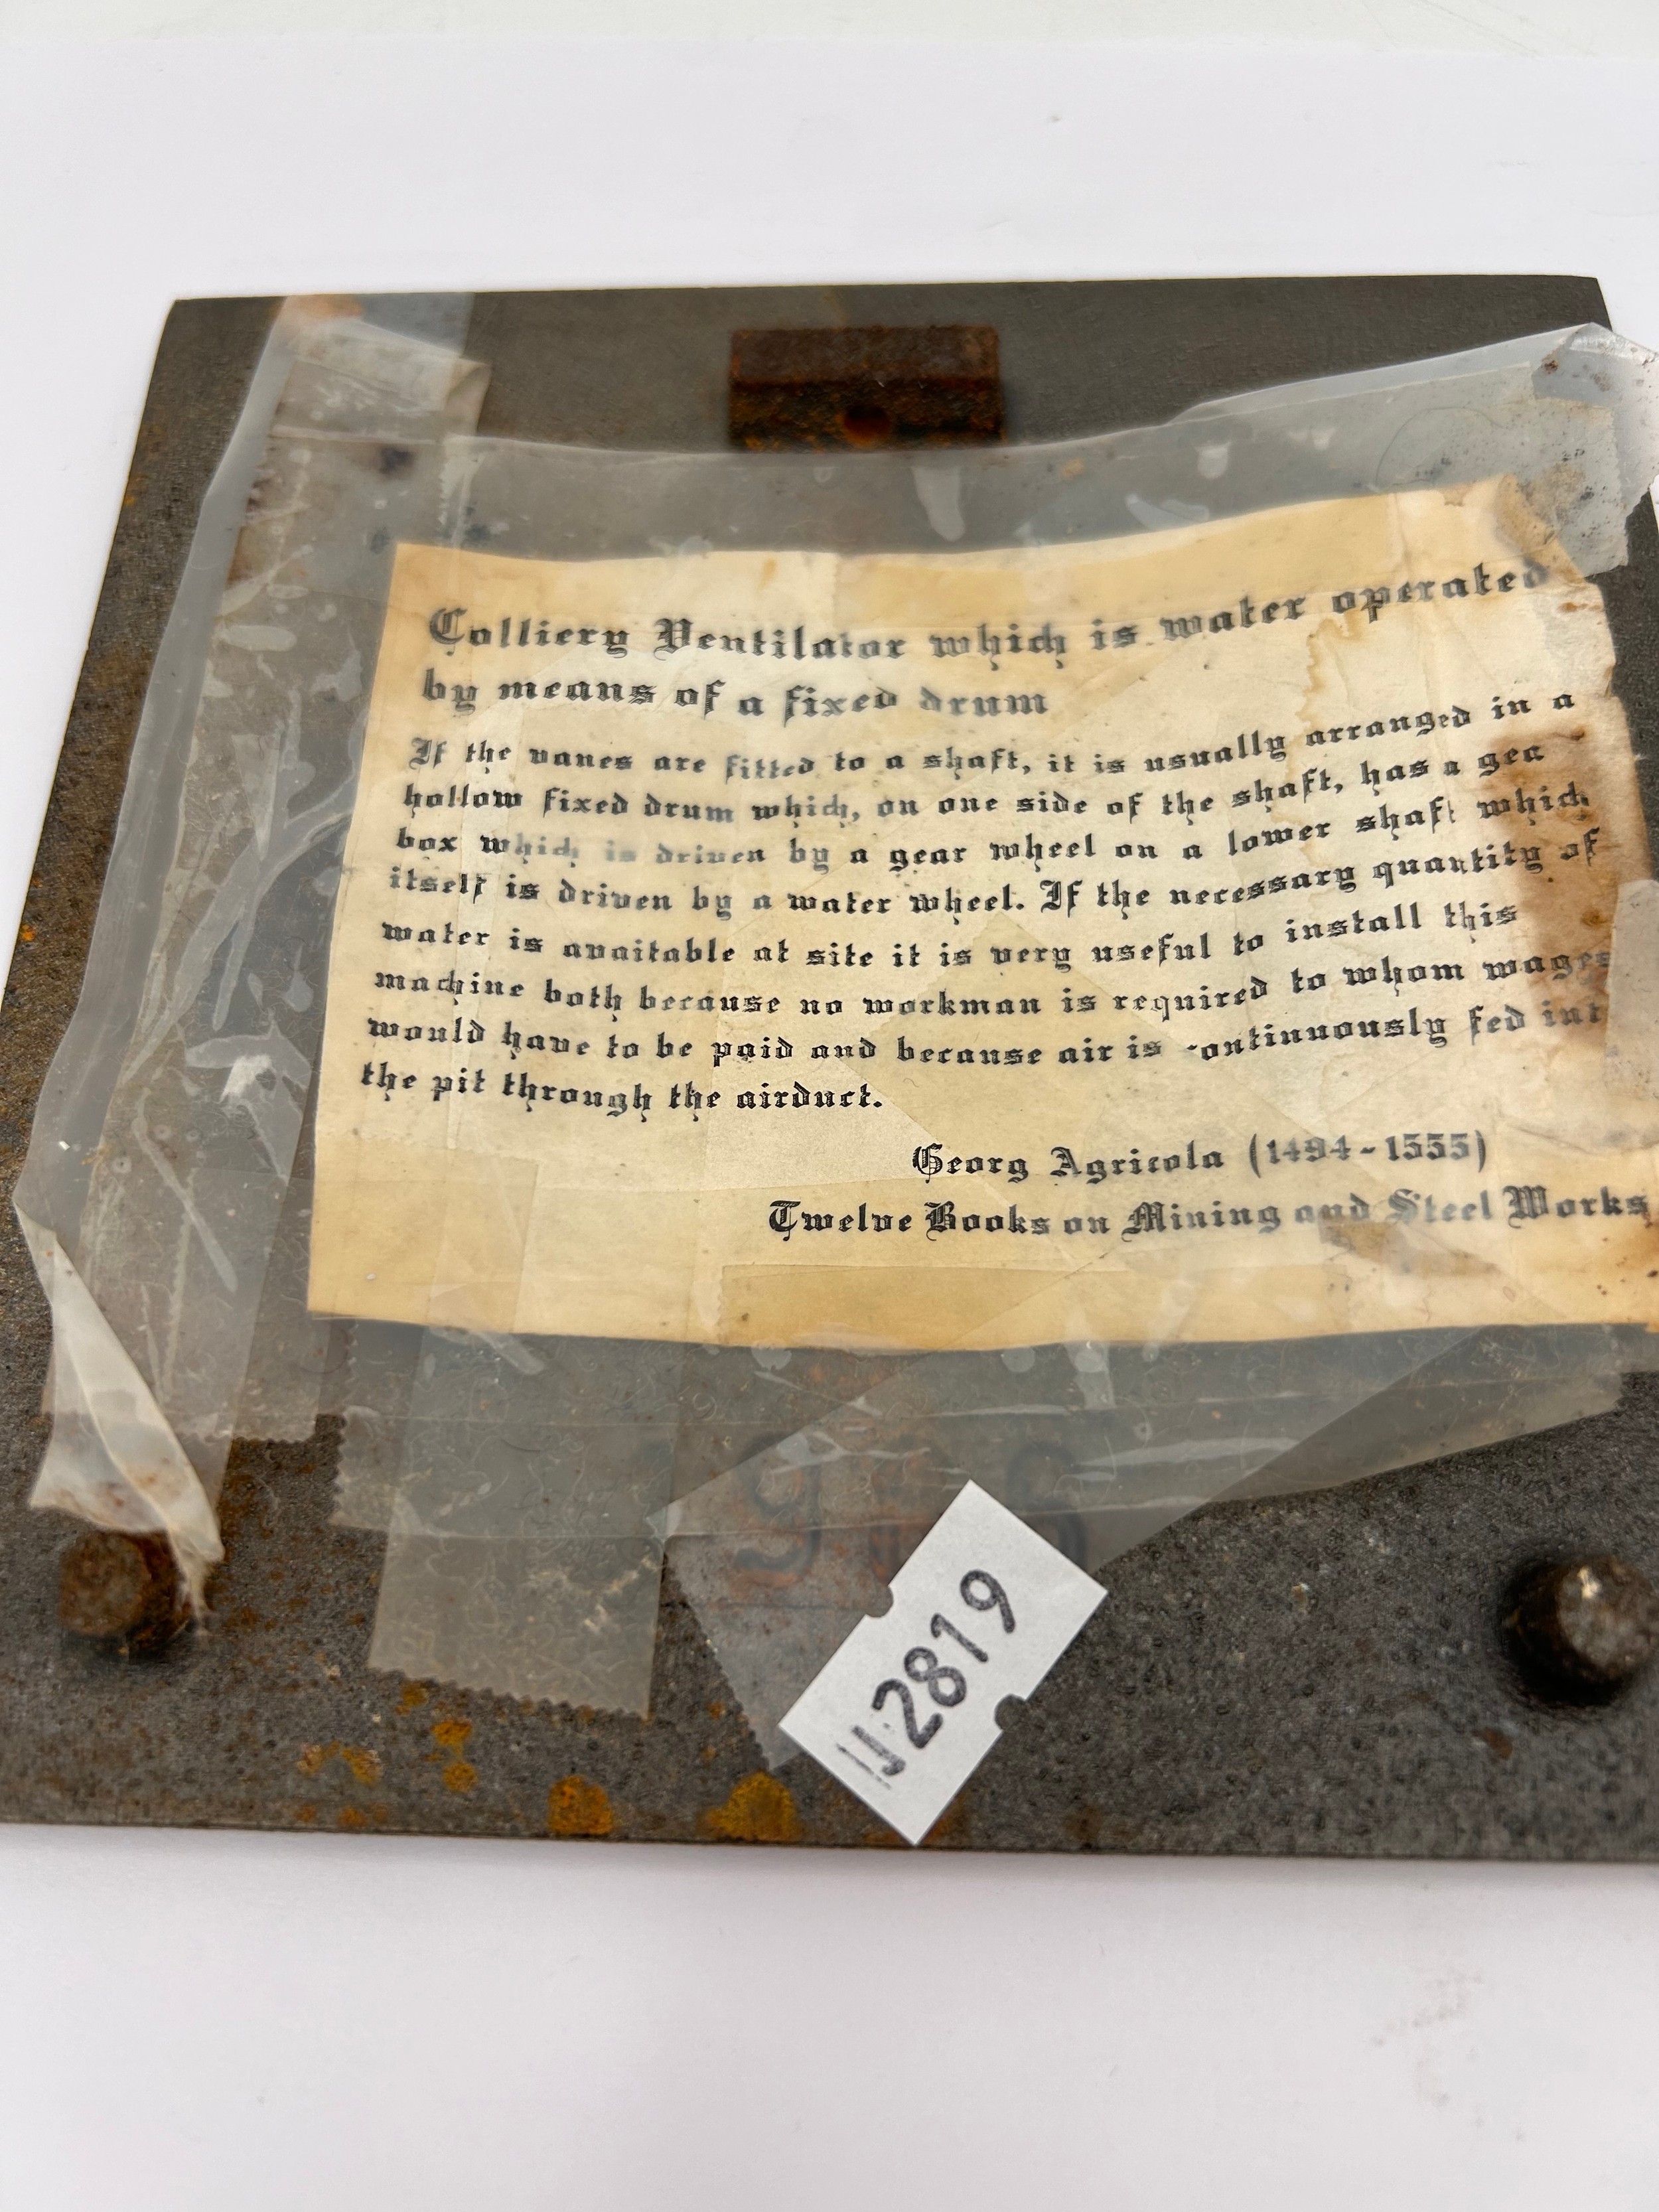 Colliery Ventilator which is water operated
by means of a fixed drum
If the vanes are fitted to a shaft, it is usually arranged in a
hollow fixed drum which, on one side of the shaft, has a gea
box which is driven by a gear wheel on a lower shaft which
itself is driven by a water wheel. If the necessary quantity of
water is avaitable at site it is very useful to install this
machine both because no workman is required to whom wages
would have to be paid and because air is ontinuously fed int
the pit through the airduct.
Georg Agricola (1494-1555)
Twelve Books on Mining and Steel Works
2819